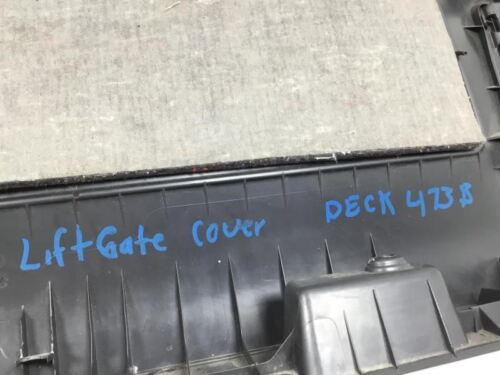 LiftGate cover DECK 473B